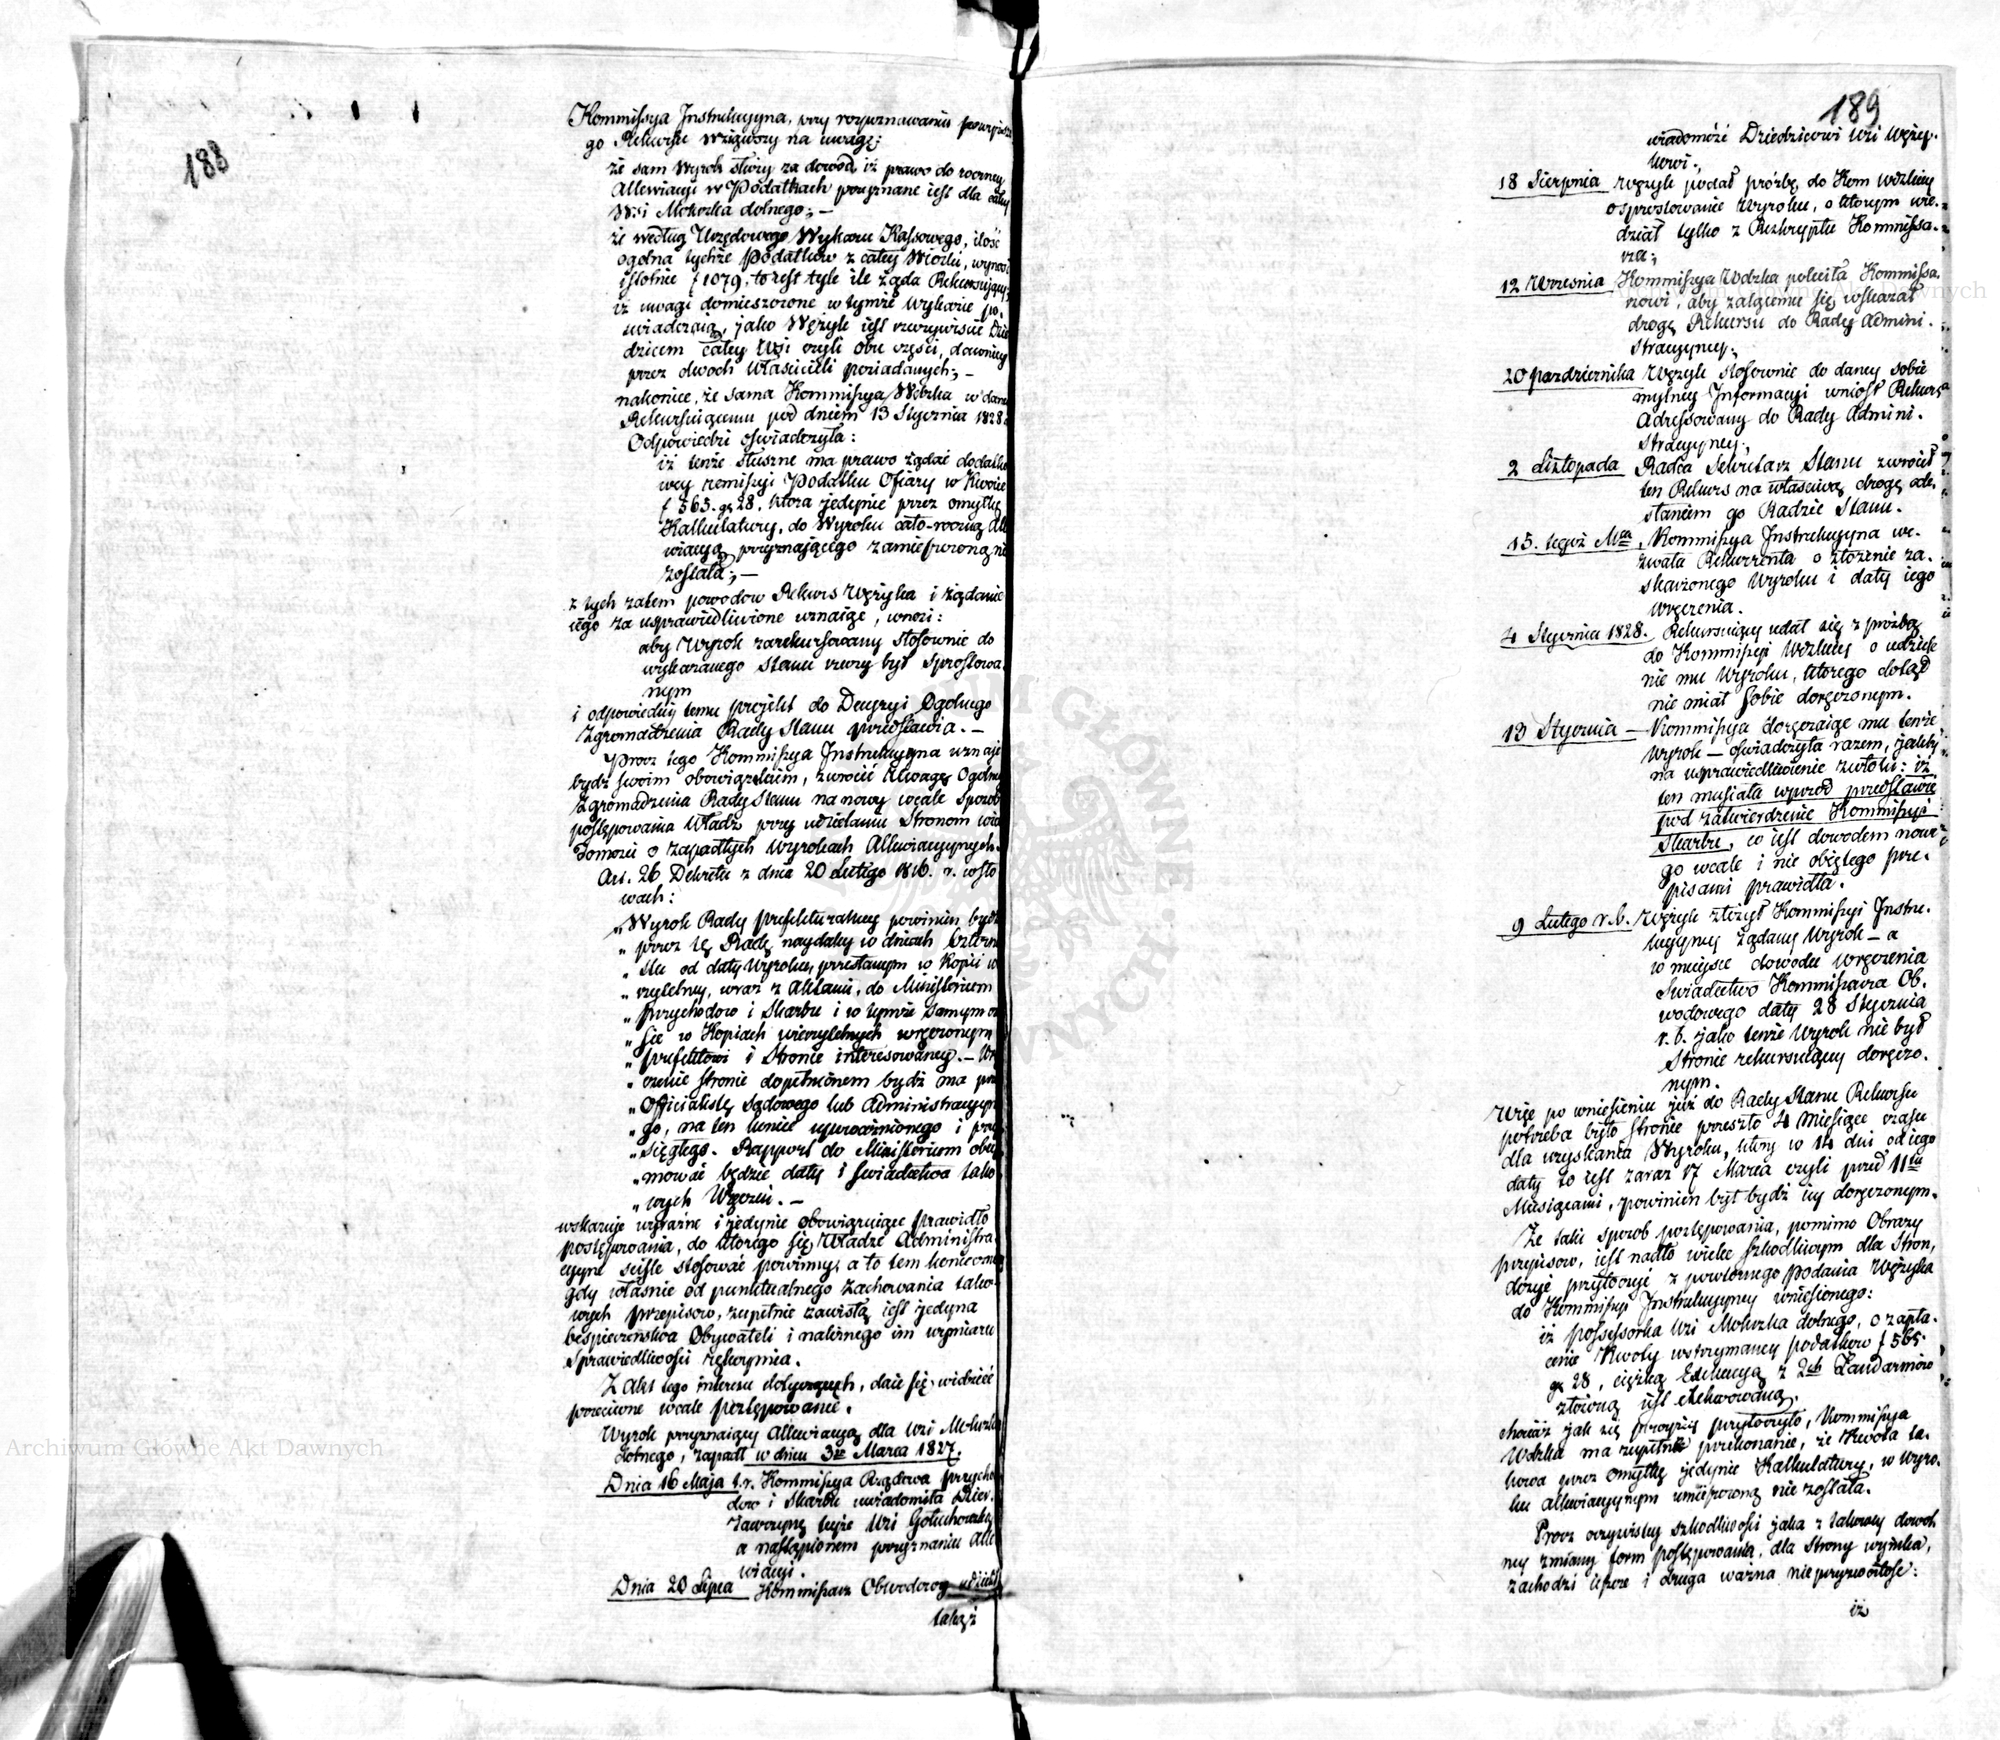 188
Kommissya Instrukcyyna, przy rozpoznawaniu powyższe
go Rekursu wziąwszy na uwagę;
że sam Wyrok służy za dowód, iż prawo do roczney
Allewiacyi w Podatkach przyznane iest dla całey
Wsi Mokrzka dolnego; —
że według Urzędowego Wykazu Kassowego, ilość
ogólna tychże Podatków z całey Wioski, wynosi
istotnie f 1079, to iest tyle ile żąda Rekursuiący;
iż uwagi domieszczone w tymże Wykazie po-
świadczaią, jako Wężyk iest rzeczywiście Dzie
dzicem całey Wsi czyli obu części, dawniey
przez dwóch Właścicieli posiadanych; —
nakoniec, że sama Kommissya Wdzka w daney
Rekursuiącemu pod dniem 13 Stycznia 1828 r.
Odpowiedzi oświadczyła:
iż tenże słuszne ma prawo żądać dodatko
wey remissyi Podatku Ofiary w Kwocie
f 565. gr 28. która jedynie przez omyłkę
Kalkulatury, do Wyroku cało-roczną Alle
wiacyą przyznającego zamieszczoną nie
została; —
z tych zatem powodów Rekurs Wężyka i żądanie
iego za usprawiedliwione uznaiąc, wnosi:
aby Wyrok zarekursowany stosownie do
wykazanego stanu rzeczy był sprostowa
nym
i odpowiedni temu projekt do Decyzyi Ogólnego
Zgromadzenia Rady Stanu przedstawia. —
Prócz tego Kommissya Instrukcyyna uznaie
bydź swoim obowiązkiem, zwrócić Uwagę Ogólne
Zgromadzenia Rady Stanu na nowy wcale sposób
postępowania Władz przy udzielaniu Stronom wia
domości o zapadłych Wyrokach Allewiacyynych.
Art. 26 Dekretu z dnia 20 Lutego 1816. r. wsło
wach:
„Wyrok Rady prefekturalney powinien bydź
„przez tę Radę naydaley w dniach Cztern
„stu od daty Wyroku, przesłanym w Kopii w
„rzytelney, wraz z Aktami, do Ministerium
„Przychodów i Skarbu i w tymże samym cza
„sie w Kopiach wierzytelnych wręczonym
„prefektowi i Stronie interesowaney. — Wrę
„czenie stronie dopełnionem bydź ma prz
„Officialistę Sądowego lub Administracyyn
„go, na ten koniec upoważnionego i przy
„sięgłego. Rapport do Ministerium obey
„mować będzie datę i świadectwa tako
„wych Wręczeń. —
wskazuje wyraźne i jedynie obowiązuiące prawidło
postępowania, do którego się Władze Administra
cyyne ściśle stosować powinny, a to tem konieczniey
gdy właśnie od punktualnego zachowania tako-
wych przepisów, zupełnie zawisła iest jedyna
beśpieczeństwa Obywateli i należnego im wymiaru
sprawiedliwości rękoymia.
Z Akt tego interesu dotyczących, daie się widzieć
przeciwne wcale postępowanie.
Wyrok przyznaiący Allewiacyą dla Wsi Mokrzka
dolnego, zapadł w dniu 3m Marca 1827.
Dnia 16 Maja t. r. Kommissya Rządowa przycho
dów i Skarbu uwiadomiła Dzier-
żawczynę teyże Wsi Gołuchowską
o nastąpionem przyznaniu Alle
wiacyi.
Dnia 20 Lipca Kommissarz Obwodowy udzielił
takąż
189
wiadomość Dziedzicowi Wsi Węży-
kowi;
18 Sierpnia Wężyk podał prośbę do Kom Wdzkiey
o sprostowanie Wyroku, o którym wie-
dział tylko z Reskryptu Kommissa-
rza;
12 Września Kommissya Wdzka poleciła Kommissa-
rzowi, aby żalącemu się wskazał
drogę Rekursu do Rady Admini-
stracyyney;
20 Pazdziernika Wężyk stosownie do daney sobie
mylney Informacyi wniósł Rekurs
Adressowany do Rady Admini-
stracyyney;
2 Listopada Radca Sekretarz Stanu zwrócił
ten Rekurs na właściwą drogę ode-
słaniem go Radzie Stanu.
15. tegoż Mca, Kommissya Instrukcyyna we-
zwała Rekurrenta o złożenie za-
skarżonego Wyroku i daty iego
wręczenia.
4 Stycznia 1828. Rekursuiący udał się z prośbą
do Kommissyi Wdzkiey o udziele
nie mu Wyroku, którego dotąd
nie miał sobie doręczonym.
13 Stycznia — Kommissya doręczaiąc mu tenże
Wyrok — oświadczyła razem, jakby
na usprawiedliwienie zwłoki: iż
ten musiała wprzód przedstawić
pod zatwierdzenie Kommissyi
Skarbu, co iest dowodem nowe
go wcale i nie obiętego prze-
pisami prawidła.
9 Lutego r. b. Wężyk złożył Kommissyi Instru-
kcyyney żądany Wyrok — a
w mieysce dowodu wręczenia
Świadectwo Kommissarza Ob-
wodowego daty 28 Stycznia
r. b. jako tenże Wyrok nie był
Stronie rekursuiącey doręczo-
nym.
Więc po wniesieniu już do Rady Stanu Rekursu
potrzeba było stronie przeszło 4 Miesiące czasu
dla uzyskania Wyroku, który w 14 dni od iego
daty to iest zaraz 17 Marca czyli przed 11tu
Miesiącami, powinien był bydź iey doręczonym.
Że taki sposób postępowania, pomimo Obrazy
przepisów, iest nadto wielce szkodliwym dla Stron,
dosyć przytoczyć z powtórnego Podania Wężyka
do Kommissyi Instrukcyyney wniesionego:
iż possessorka Wsi Mokrzka dolnego, o zapła-
cenie Kwoty wstrzymaney podatków f 565.
gr 28, ciężką Exekucyą z 2ch Żandarmów
złożoną iest exekwowaną,
chociaż jak się powyżey przytoczyło, Kommissya
Wdzka ma zupełne przekonanie, że Kwota ta-
kowa przez omyłkę jedynie Kalkulatury, w Wyro-
ku allewiacyynym umieszczoną nie została.
Prócz oczywistey szkodliwości jaka z takowey dowol
ney zmiany form postępowania, dla Strony wynika,
zachodzi ieszcze i druga ważna nieprzyzwoitość:
iż
Archiwum Główne Akt Dawnych